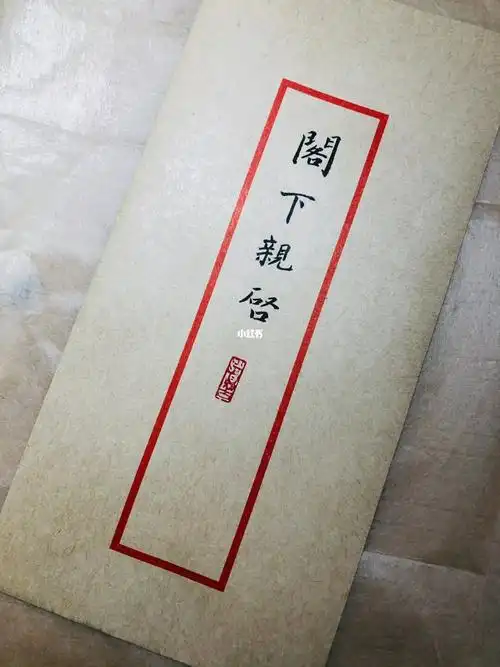 閣下親啓
小红书